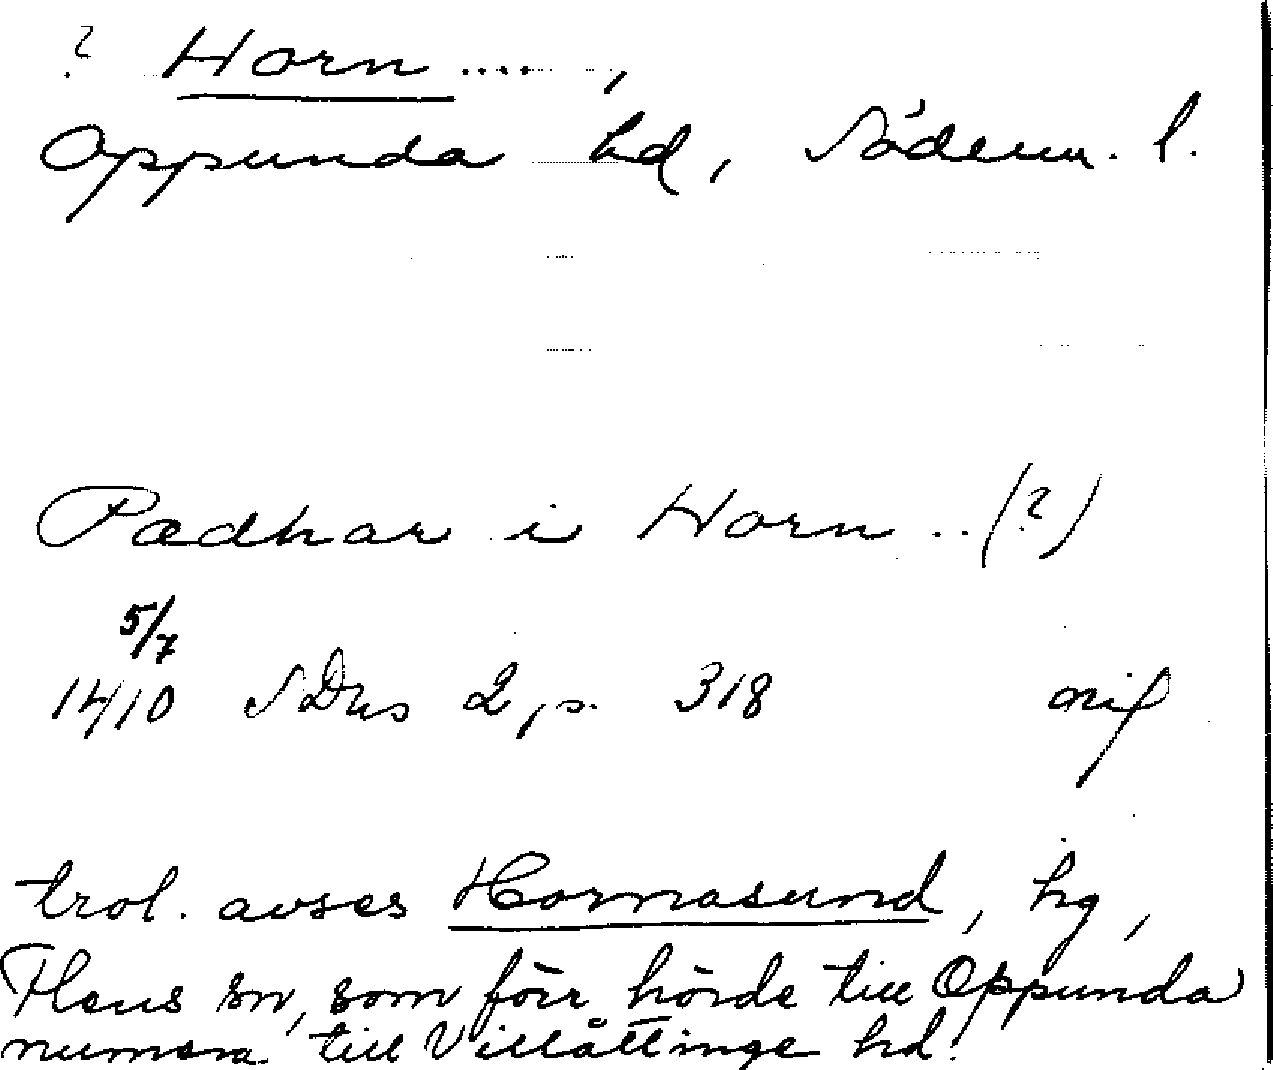 ? Horn ....,
Oppunda hd, Söderm. l.
Pædhar i Horn ..(?)
5/7
1410 SDns 2, s. 318 orig
trol. avses Hornasund, hg,
Flens sn, som förr hörde till Oppunda
numera till Villåttinge hd.